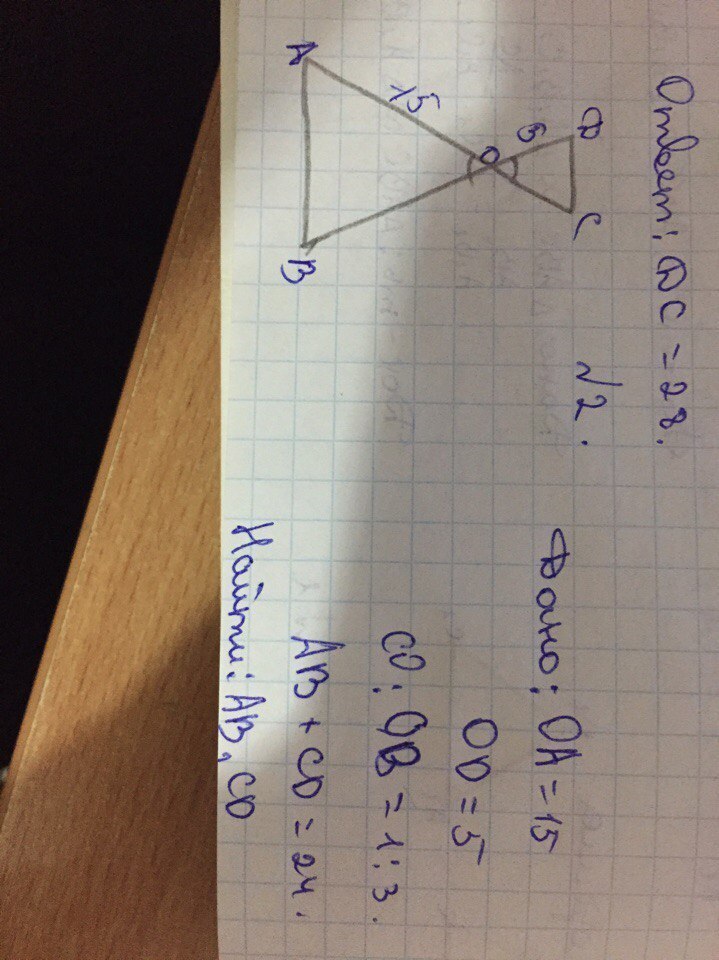 Ответ: DC = 28.
√2.
A
15
D
5
O
C
B
Дано: OA = 15
OD = 5
CO : OB = 1 : 3.
AB + CD = 24.
Найти: AB, CD